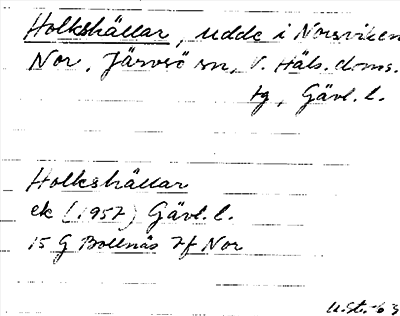 Holkshällar, udde i Norsviken
Nor, Järvsö sn, V. Häls. doms.
tg, Gävl. l.
Holkshällar
ek (1957) Gävl. l.
15 G Bollnäs 7f Nor
U.St.-63